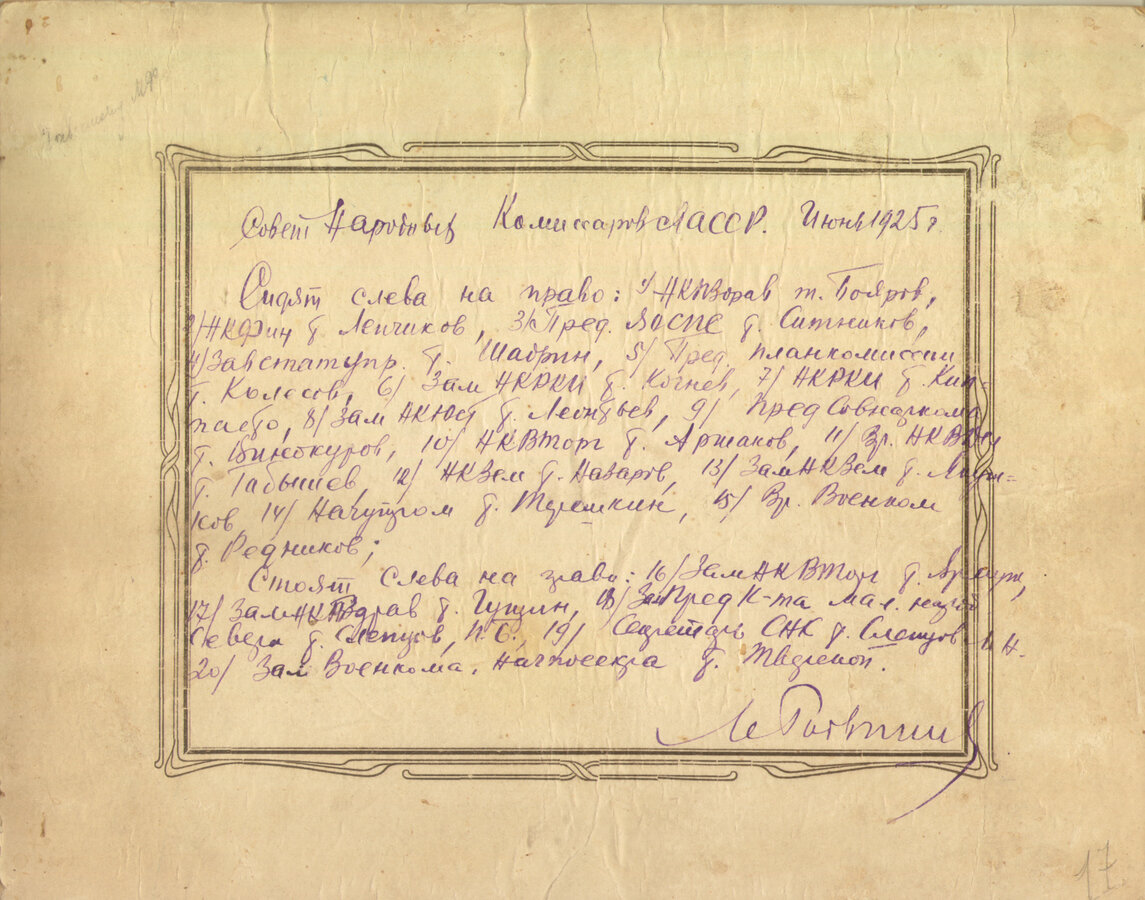 Совет Народных Комиссаров ЯАССР. Июнь 1925 г.
Сидят слева на право: 1/ НКЗдрав т. Бояров,
2/ НКФин т. Лепчиков, 3/ Пред. ЯОСПС т. Ситников,
4/ Завстатупр. т. Шабрин, 5/ Пред. планкомиссии
т. Колесов, 6/ Зам НКРКИ т. Когнев, 7/ НКРКИ т. Кип-
пасто, 8/ Зам НКЮст т. Леонтьев, 9/ Пред Совнаркома
т. Винокуров, 10/ НКВТорг т. Аржаков, 11/ Вр. НКВД
т. Табышев, 12/ НКЗем т. Назаров, 13/ ЗамНКЗем т.
ков, 14/ Начупром т. Терешкин, 15/ Вр. Военком
т. Редников;
Стоят слева на право: 16/ ЗамНКВТорг т.
17/ ЗамНКЗдрав т. Гущин, 18/ Зам Пред К-та мал. народ
Севера т. Слепцов, П.С. 19/ Секретарь СНК т. Слепцов
20/ Зам Военкома,
17.